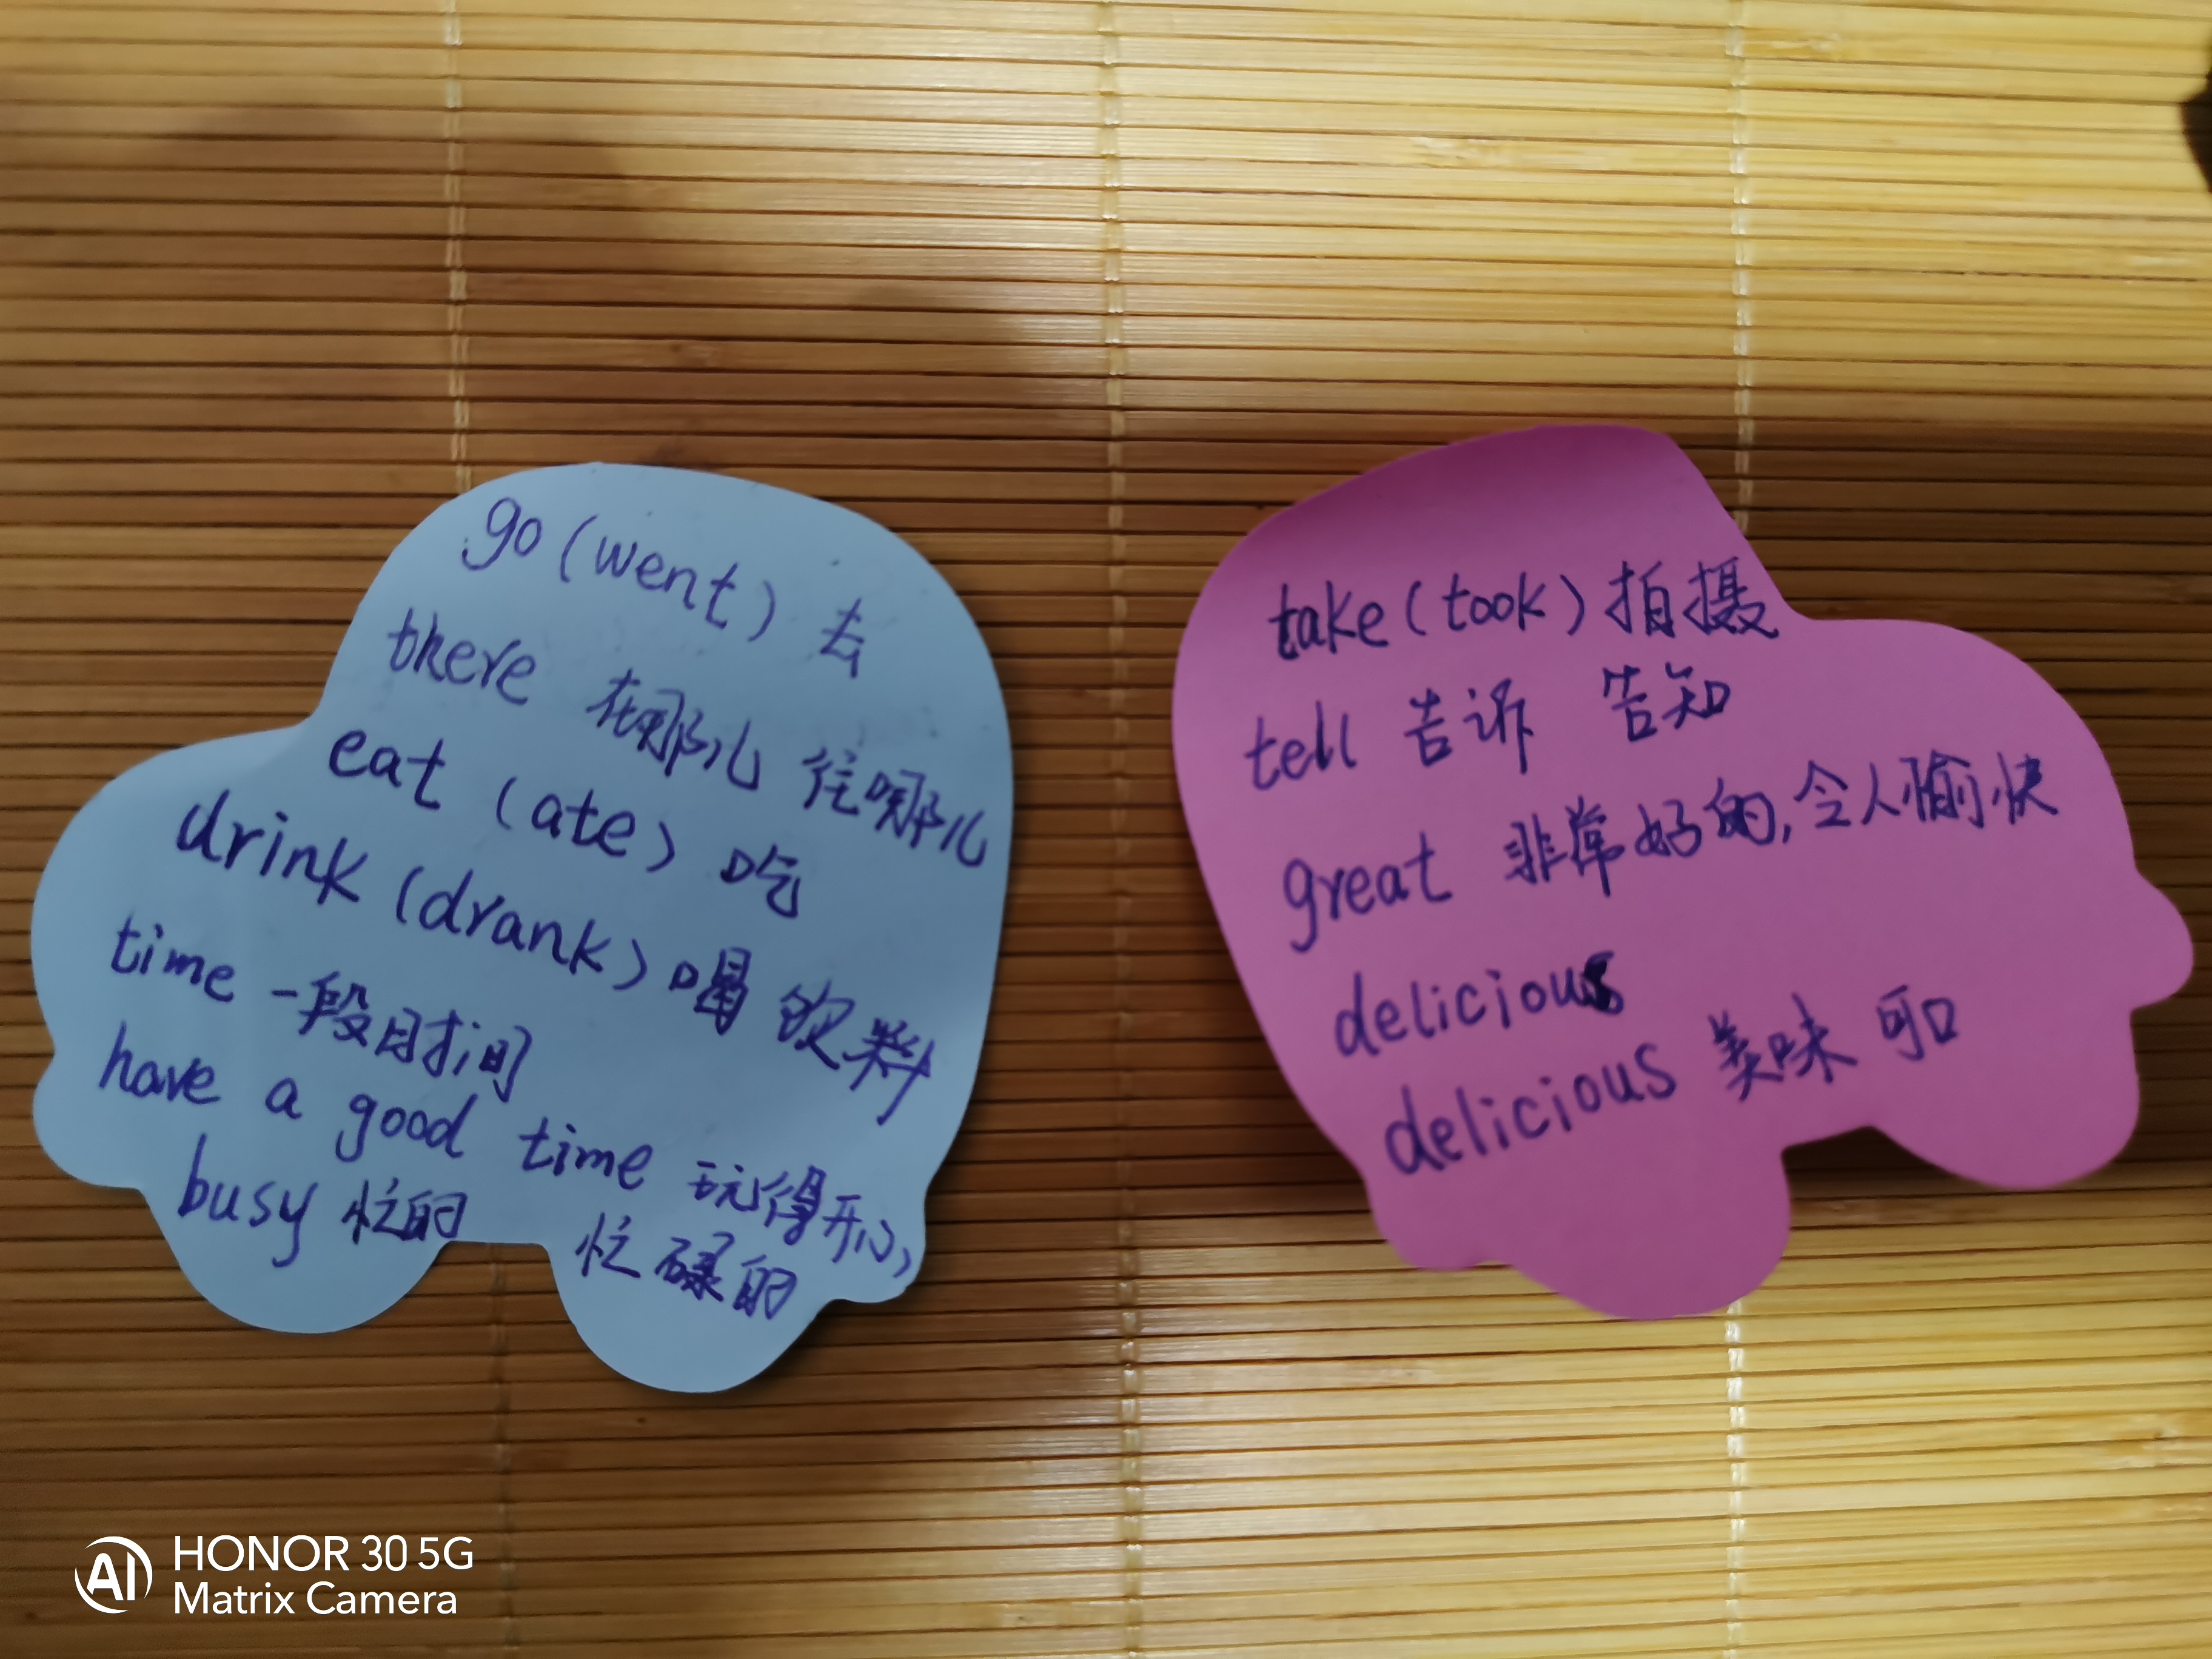 go (went) 去
there 在哪儿 往哪儿
eat (ate) 吃
drink (drank) 喝 饮料
time 一段时间
have a good time 玩得开心
busy 忙的 忙碌的
take (took) 拍摄
tell 告诉 告知
great 非常好的,令人愉快
delicious
delicious 美味 可口
AI HONOR 30 5G
Matrix Camera